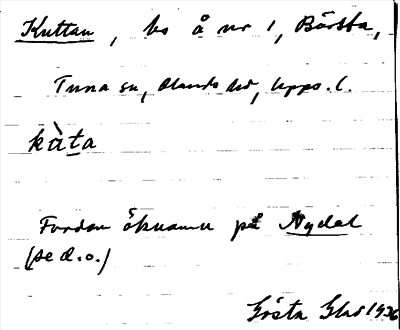 Kuttan, bs å nr 1, Bärsta,
Tuna sn, Olands hd, Upps. l.
kùta
Fordom öknamn på Nydal
(se d.o.)
Gösta 1936